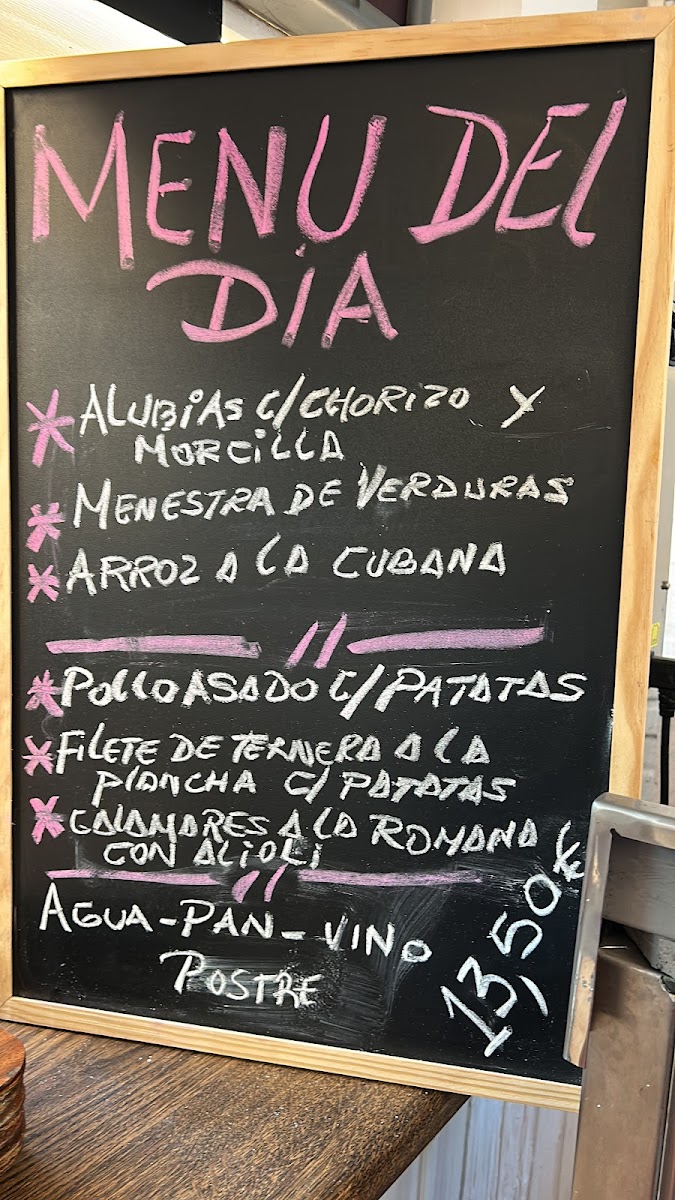 MENU DEL
DiA
* ALUBiAS C/CHORIZO Y
MORCiLLA
* MENESTRA DE VERDURAS
* ARROZ A LA CUBANA
* POLLO ASADO C/PATATAS
* FILETE DE TERNERA A LA
PLANCHA C/ PATATAS
* CALAMARES A LA ROMANA
CON ALIOLi
AGUA-PAN-VINO
POSTRE
13,50€